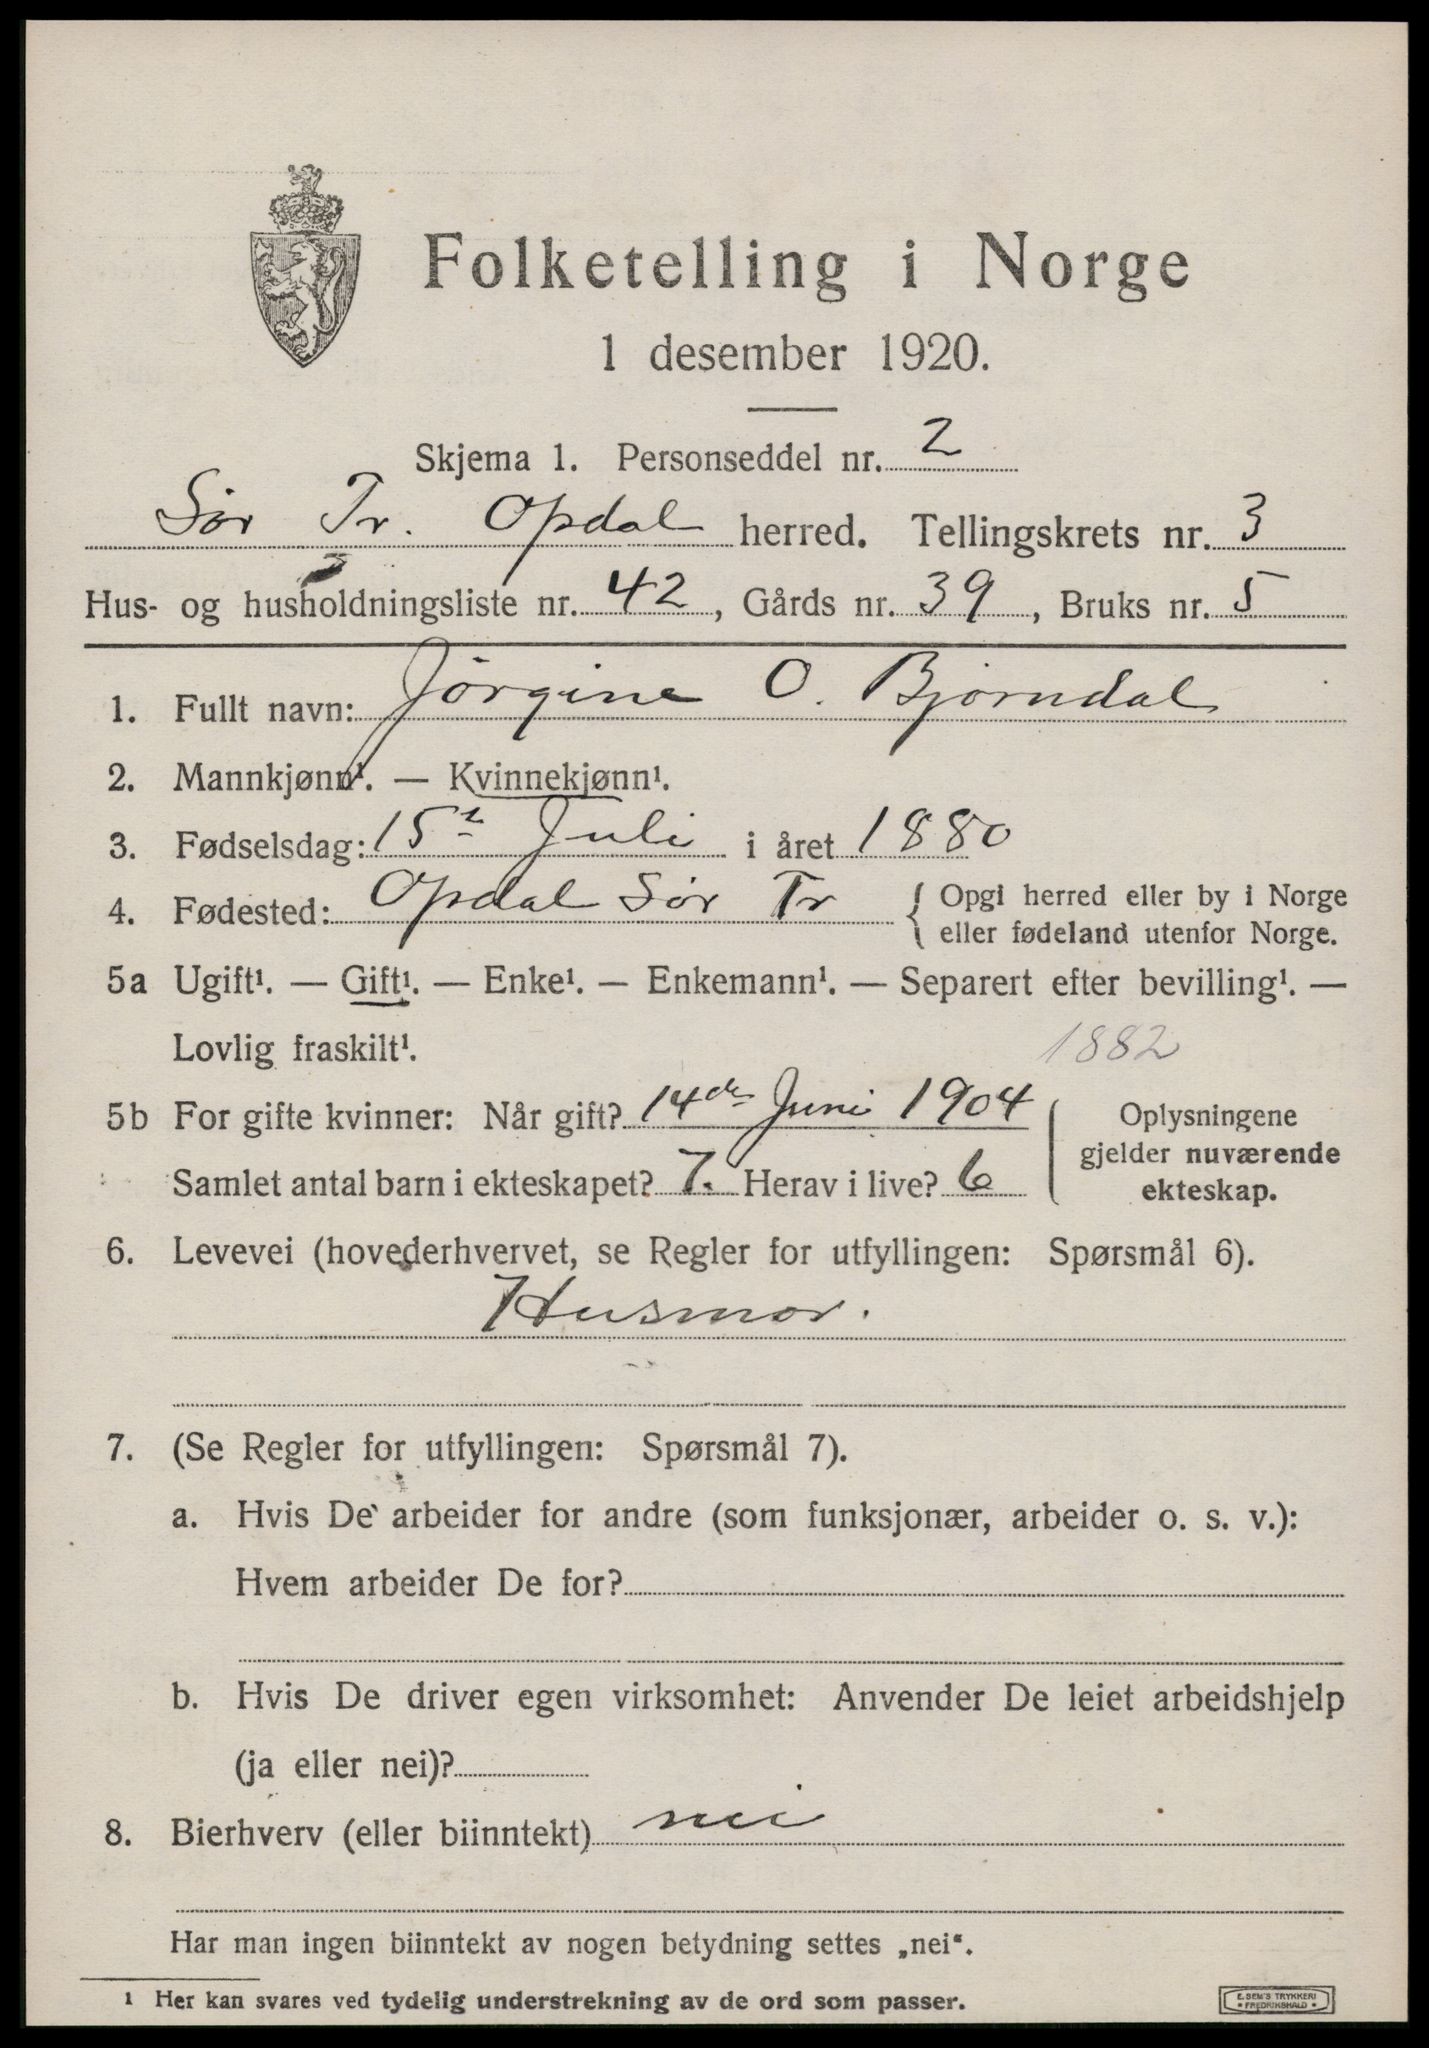 Folketelling i Norge
1 desember 1920.
Skjema 1. Personseddel nr. 2
Sør Tr. Opdal herred. Tellingskrets nr. 3
Hus- og husholdningsliste nr. 42, Gårds nr. 39, Bruks nr. 5
1. Fullt navn: Jørgine O. Bjørndal
2. Mannkjønn¹. — Kvinnekjønn¹.
3. Fødselsdag: 15de Juli i året 1880
4. Fødested: Opdal Sør Tr { Opgi herred eller by i Norge
eller fødeland utenfor Norge.
5a Ugift¹. — Gift¹. — Enke¹. — Enkemann¹. — Separert efter bevilling¹. —
Lovlig fraskilt¹. 1882
5b For gifte kvinner: Når gift? 14de Juni 1904
Samlet antal barn i ekteskapet? 7. Herav i live? 6
Oplysningene
gjelder nuværende
ekteskap.
6. Levevei (hovederhvervet, se Regler for utfyllingen: Spørsmål 6).
Husmor.
7. (Se Regler for utfyllingen: Spørsmål 7).
a. Hvis De arbeider for andre (som funksjonær, arbeider o. s. v.):
Hvem arbeider De for?
b. Hvis De driver egen virksomhet: Anvender De leiet arbeidshjelp
(ja eller nei)?
8. Bierhverv (eller biinntekt) nei
Har man ingen biinntekt av nogen betydning settes „nei“.
¹ Her kan svares ved tydelig understrekning av de ord som passer.
E. SEM'S TRYKKERI
* FREDRIKSHALD *